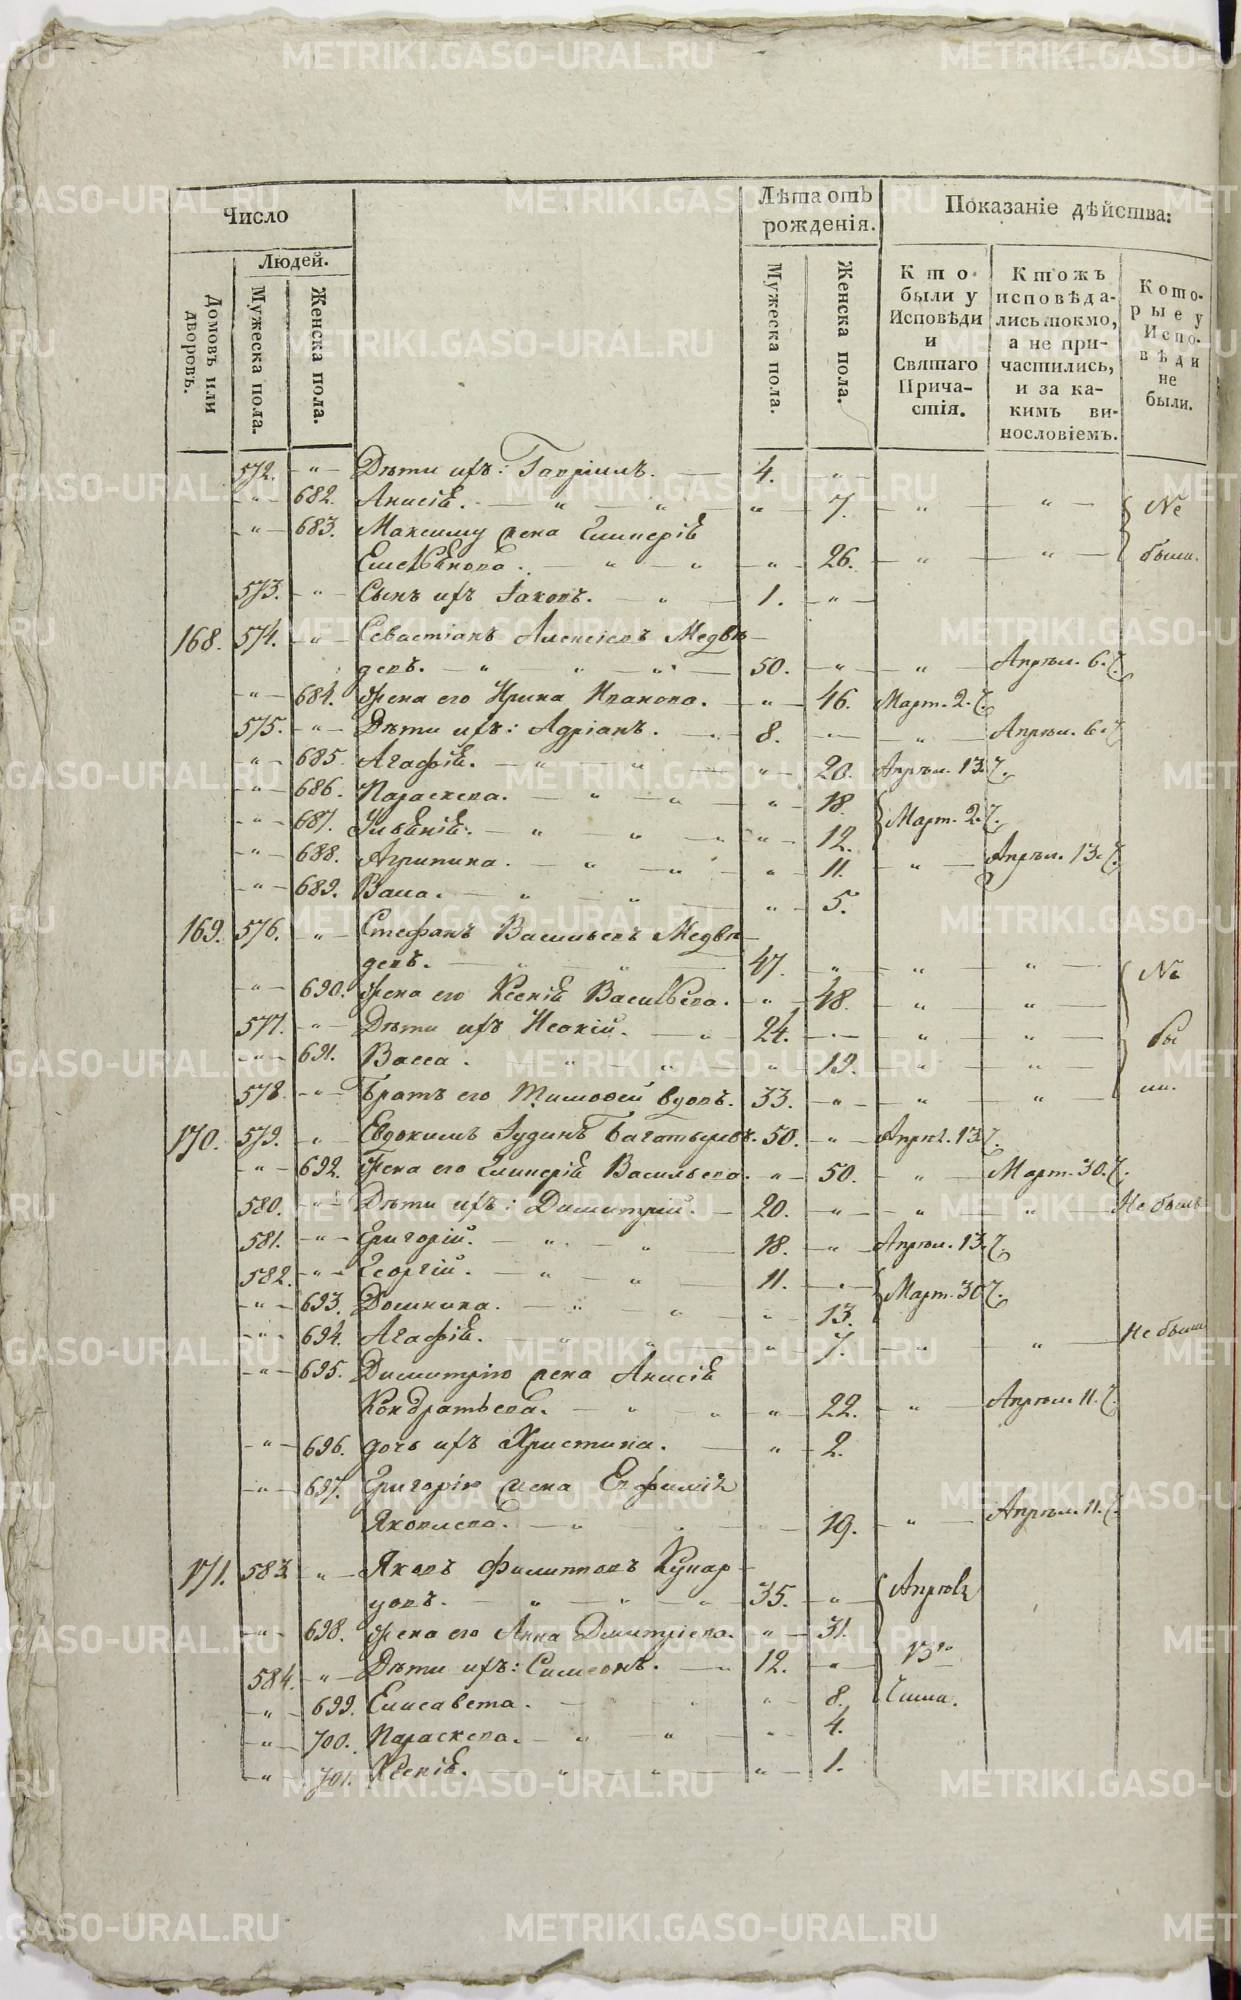 Число
Людей.
Домовъ или дворовъ.
Мужеска пола.
Женска пола.
Лѣта отъ рожденія.
Мужеска пола.
Женска пола.
Показаніе дѣйства:
Кто были у Исповѣди и Святаго Причастія.
Ктожъ исповѣдались токмо, а не причастились, и за какимъ винословіемъ.
Которые у Исповѣди не были.
572. -"- Дѣти ихъ: Гавріилъ. — 4. -"-
-"- 682. Анисія. — " — " — " — 7. — " — " — Не
-"- 683. Максиму жена Гликерія
Емельянова. — " — " — " — 26. — " — " — были.
573. -"- Сынъ ихъ Іаковъ. — " — 1. -"-
168. 574. -"- Севастіанъ Алексіевъ Медвѣ-
девъ. — " — " — " — 50. — " — " — Апрѣл. 6. ч.
-"- 684. Жена его Ирина Иванова. -"- 46. Март. 2. ч.
575. -"- Дѣти ихъ: Адріанъ. — 8. -"- " — Апрѣл. 6. ч.
-"- 685. Агафія. — " — " — " — 20. Апрѣл. 13. ч.
-"- 686. Параскева. — " — " — " — 18.
Март. 2. ч.
-"- 687. Іуліанія. — " — " — " — 12.
-"- 688. Агрипина. — " — " — " — 11. — " — Апрѣл. 13. ч.
-"- 689. Васса. — " — " — " — 5.
169. 576. -"- Стефанъ Васильевъ Медвѣ-
девъ. — " — " — 47. — " — " — " — Не
-"- 690. Жена его Ксенія Васильева. -"- 48. — " — " —
577. -"- Дѣти ихъ — " — 24. -"- " — " — бы
-"- 691. Васса. — " — " — " — 19. — " — " —
578. -"- Братъ его Тимофей вдовъ. 33. -"- " — " — ли.
170. 579. -"- Евдокимъ Іудинъ Багатыревъ. 50. -"- Апрѣл. 13. ч.
-"- 692. Жена его Гликерія Васильева. -"- 50. — " — Март. 30. ч.
580. -"- Дѣти ихъ: Димитрій. — 20. -"- " — " — Не былъ
581. -"- Григорій. — " — " — 18. -"- Апрѣл. 13. ч.
582. -"- Георгій. — " — " — 11. -"-
Март. 30. ч.
-"- 693. Домника. — " — " — " — 13.
-"- 694. Агафія. — " — " — " — 7. — " — " — Не была
-"- 695. Димитрію жена Анисія
Кондратьева. — " — " — " — 22. — " — Апрѣл. 11. ч.
-"- 696. дочь ихъ Христина. — " — 2.
-"- 697. Григорію жена Евфимія
Яковлева. — " — " — 19. — " — Апрѣл. 11. ч.
171. 583. -"- Яковъ Филипповъ
— " — " — " — 35. -"- Апрѣля
-"- 698. Жена его Анна Димитріева. -"- 31.
584. -"- Дѣти ихъ: Симеонъ. — " — 12. -"- 13го
-"- 699. Елисавета. — " — " — 8. числа.
-"- 700. Параскева. — " — " — " — 4.
-"- 701. Ксенія. — " — " — " — 1.
METRIKI.GASO-URAL.RU